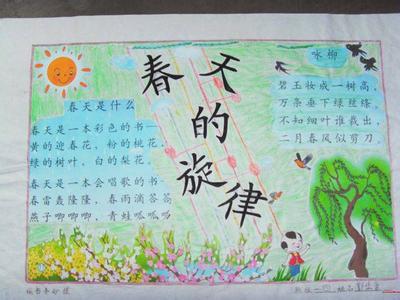 春天的旋律
春天是什么
春天是一本彩色的书—
黄的迎春花，粉的桃花，
绿的树叶，白的梨花。
春天是一本会唱歌的书—
春雷轰隆隆，春雨滴答答
燕子唧唧唧，青蛙呱呱呱
咏柳
碧玉妆成一树高，
万条垂下绿丝绦，
不知细叶谁裁出，
二月春风似剪刀。